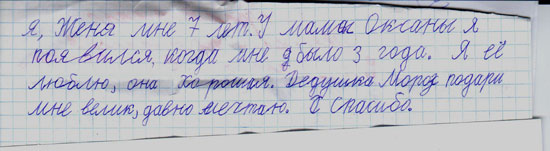 я, Жена мне 7 лет. У мамы Оксаны я
появился, когда мне было 3 года. Я её
люблю, она хорошая. Дедушка Мороз подари
мне велик, давно мечтаю. Спасибо.